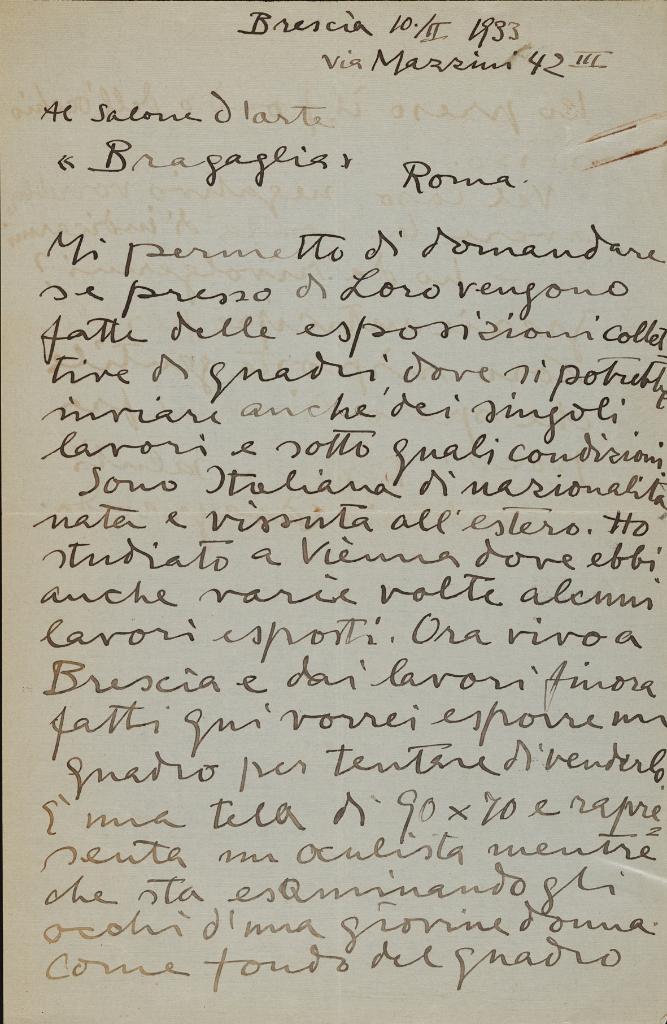 Brescia 10./II 1933
via Mazzini 42 III
Al Salone d'arte
« Bragaglia»
Roma.
Mi permetto di domandare
se presso di Loro vengono
fatte delle esposizioni collet
tive di quadri, dove si potrebbe
inviare anche dei singoli
lavori e sotto quali condizioni
Sono Italiana di nazionalità
nata e vissuta all'estero. Ho
studiato a Vienna dove ebbi
anche varie volte alcuni
lavori esposti. Ora vivo a
Brescia e dai lavori finora
fatti qui vorrei esporre un
quadro per tentare di venderlo.
È una tela di 90 x 70 e rapre=
senta un oculista mentre
che sta esaminando gli
occhi d'una giovine donna.
Come fondo del quadro